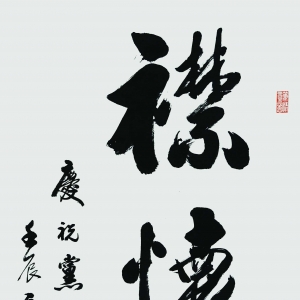 襟懷
慶祝黨
壬辰